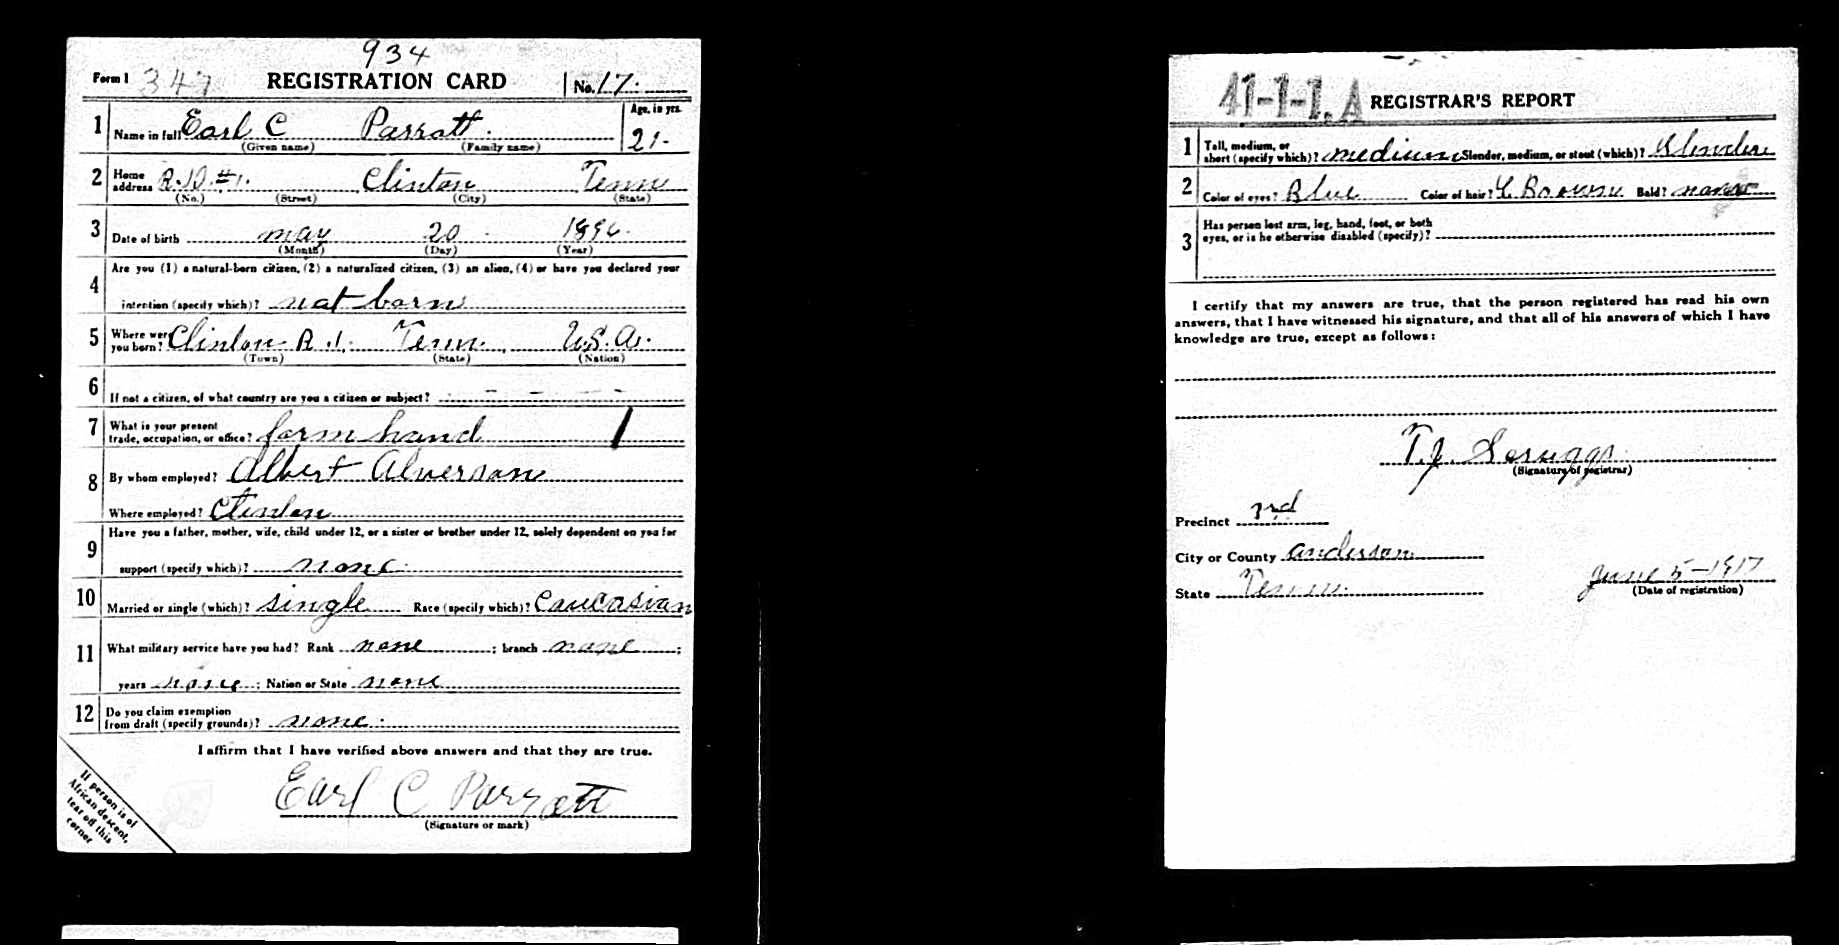 934
Form 1 347 REGISTRATION CARD No. 17.
1 Name in full Earl C Parrott. Age, in yrs. 21.
(Given name) (Family name)
2 Home address R.D. #1. Clinton Tenn
(No.) (Street) (City) (State)
3 Date of birth may 20 1896.
(Month) (Day) (Year)
4 Are you (1) a natural-born citizen, (2) a naturalized citizen, (3) an alien, (4) or have you declared your
intention (specify which)? nat born
5 Where were you born? Clinton R.1. Tenn. U.S.A.
(Town) (State) (Nation)
6 If not a citizen, of what country are you a citizen or subject? - - - -
7 What is your present trade, occupation, or office? farm hand
8 By whom employed? Albert Alverson
Where employed? Clinton
9 Have you a father, mother, wife, child under 12, or a sister or brother under 12, solely dependent on you for
support (specify which)? none.
10 Married or single (which)? single Race (specify which)? Caucasian
11 What military service have you had? Rank none ; branch none ;
years none ; Nation or State none
12 Do you claim exemption from draft (specify grounds)? none.
I affirm that I have verified above answers and that they are true.
Earl C Parrott
(Signature or mark)
If person is of
African descent,
tear off this
corner
41-1-1. A REGISTRAR'S REPORT
1 Tall, medium, or short (specify which)? medium Slender, medium, or stout (which)? Slender
2 Color of eyes? Blue Color of hair? L. Brown Bald? none
3 Has person lost arm, leg, hand, foot, or both
eyes, or is he otherwise disabled (specify)?
I certify that my answers are true, that the person registered has read his own
answers, that I have witnessed his signature, and that all of his answers of which I have
knowledge are true, except as follows:
T.J. Scruggs
(Signature of registrar)
Precinct
City or County Anderson
State Tenn. June 5-1917
(Date of registration)